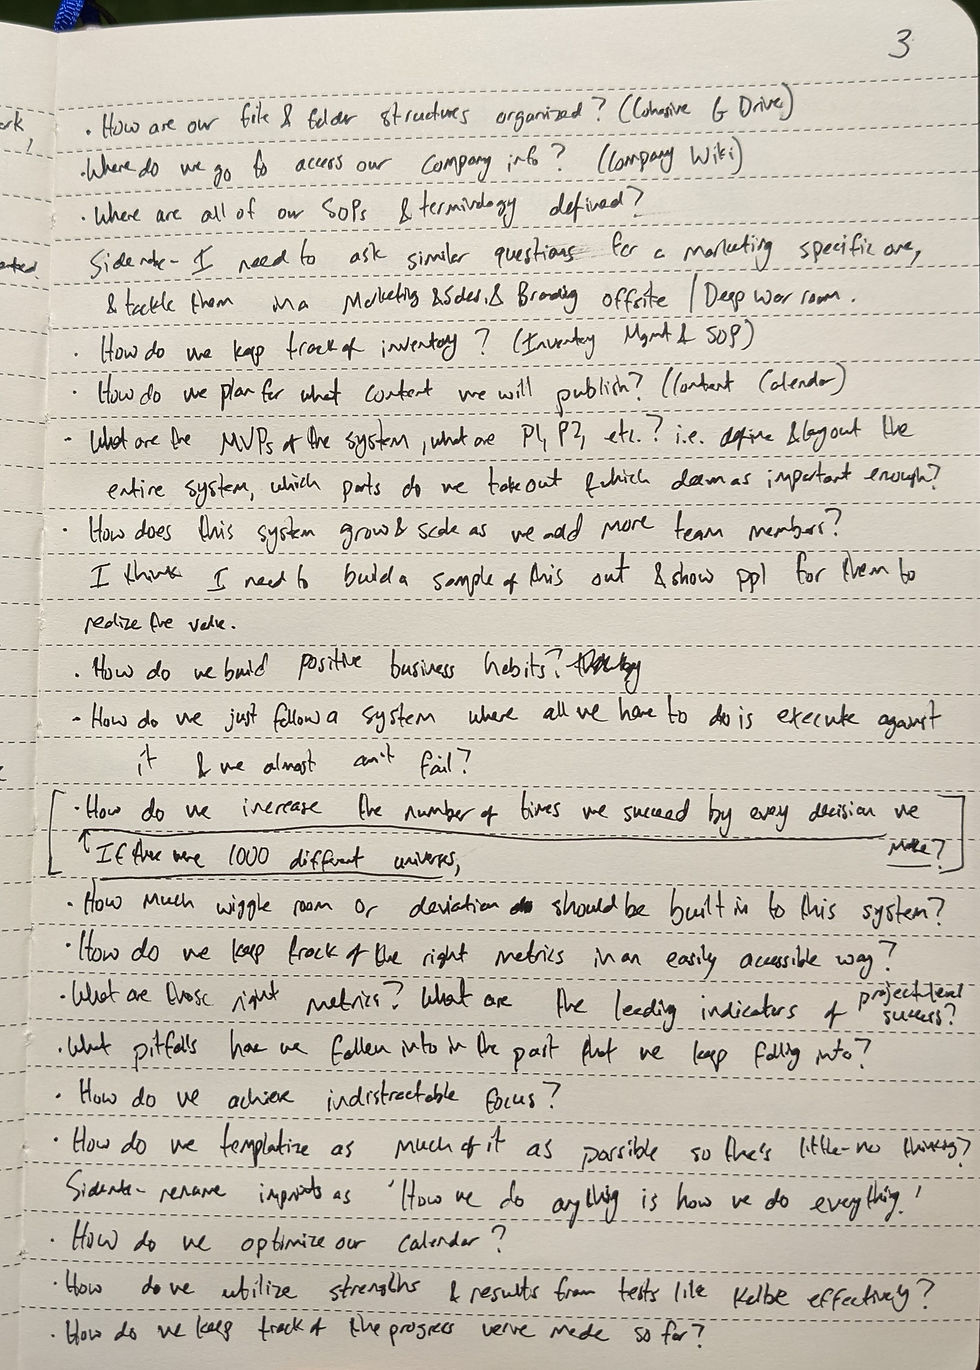 3
ork,
· How are our file & folder structures organized? (Cohesive G Drive)
· Where do we go to access our company info? (Company Wiki)
· Where are all of our SOPs & terminology defined?
Sidenote - I need to ask similar questions for a marketing specific one,
& tackle them in a Marketing & Sales, & Branding offsite / Deep war room.
· How do we keep track of inventory? (Inventory Mgmt & SOP)
· How do we plan for what content we will publish? (Content Calendar)
- What are the MVPs of the system, what are P1, P2, etc.? i.e. define & layout the
entire system, which parts do we take out & which deem as important enough?
· How does this system grow & scale as we add more team members?
I think I need to build a sample of this out & show ppl for them to
realize the value.
· How do we build positive business habits?
- How do we just follow a system where all we have to do is execute against
it & we almost can't fail?
· How do we increase the number of times we succeed by every decision we
make?
↑ If there were 1000 different universes,
· How much wiggle room or deviation should be built in to this system?
· How do we keep track of the right metrics in an easily accessible way?
· What are those right metrics? What are the leading indicators of project level
success?
· What pitfalls have we fallen into in the past that we keep falling into?
· How do we achieve indistractable focus?
· How do we templatize as much of it as possible so there's little-no thinking?
Sidenote - rename imprints as 'How we do anything is how we do everything.'
· How do we optimize our calendar?
· How do we utilize strengths & results from tests like Kolbe effectively?
· How do we keep track of the progress we've made so far?